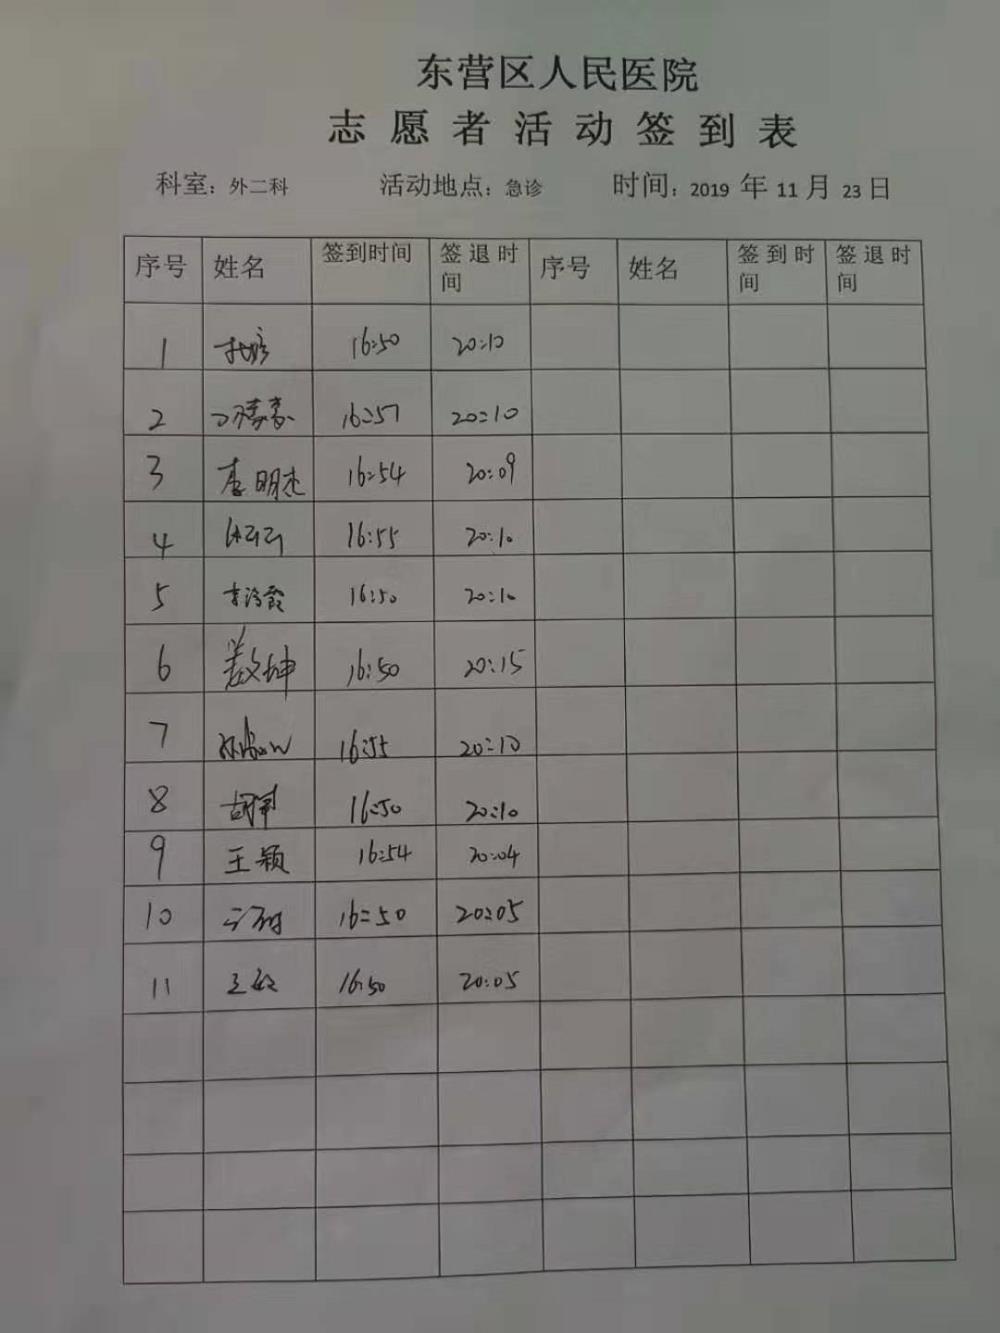 东营区人民医院
志愿者活动签到表
科室：外二科 活动地点：急诊 时间：2019 年 11 月 23 日
序号 姓名 签到时间 签退时间 序号 姓名 签到时间 签退时间
1 16:50 20:10
2 16:57 20:10
3 李明杰 16:54 20:09
4 16:55 20:10
5 16:50 20:10
6 16:50 20:15
7 16:55 20:10
8 胡军 16:50 20:10
9 王颖 16:54 20:04
10 16:50 20:05
11 16:50 20:05